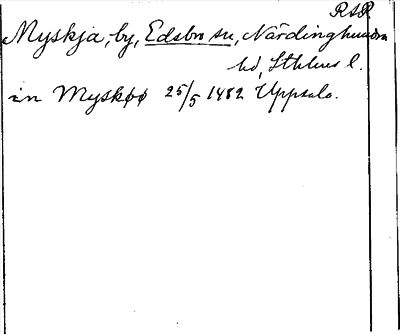 RAR
Myskja, by, Edsbro sn, Närdinghundra
hd, Sthlms l.
in Myskøø 25/5 1482 Uppsala.